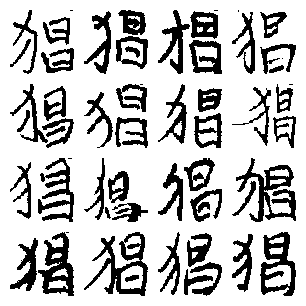 猖猖猖猖
猖猖猖猖
猖猖猖猖
猖猖猖猖